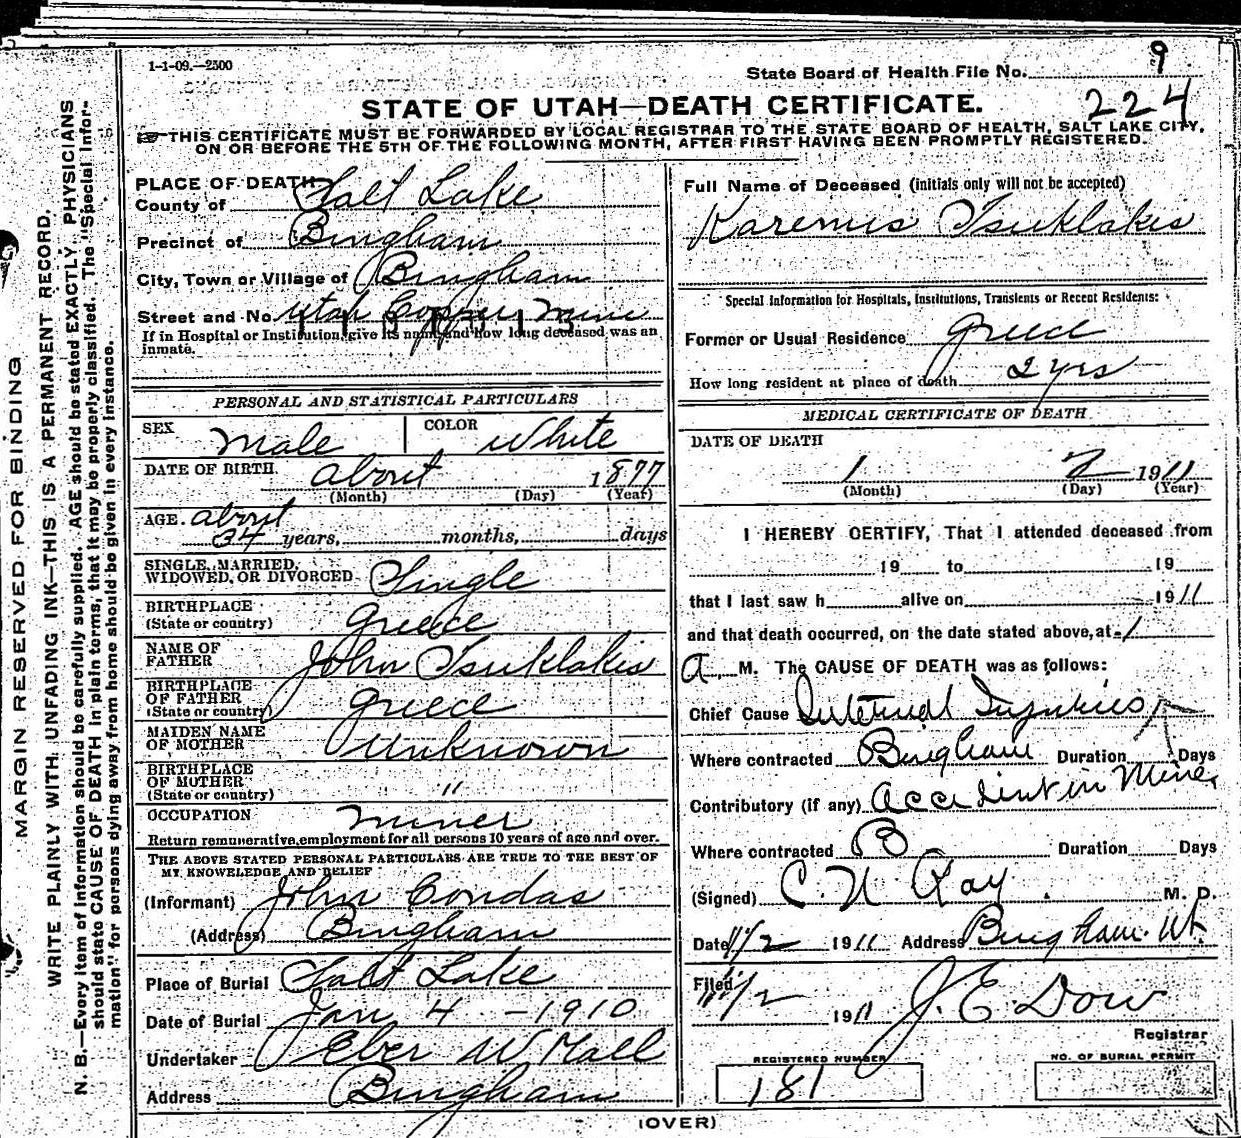 1-1-09.—2500
State Board of Health File No. 9
224
STATE OF UTAH—DEATH CERTIFICATE.
THIS CERTIFICATE MUST BE FORWARDED BY LOCAL REGISTRAR TO THE STATE BOARD OF HEALTH, SALT LAKE CITY,
ON OR BEFORE THE 5TH OF THE FOLLOWING MONTH, AFTER FIRST HAVING BEEN PROMPTLY REGISTERED.
MARGIN RESERVED FOR BINDING
WRITE PLAINLY WITH UNFADING INK—THIS IS A PERMANENT RECORD.
N. B.—Every item of information should be carefully supplied. AGE should be stated EXACTLY. PHYSICIANS
should state CAUSE OF DEATH in plain terms, that it may be properly classified. The "Special Infor-
mation" for persons dying away from home should be given in every instance.
PLACE OF DEATH
County of Salt Lake
Precinct of Bingham
City, Town or Village of Bingham
Street and No. Utah Copper Mine
If in Hospital or Institution, give its name and how long deceased was an
inmate.
PERSONAL AND STATISTICAL PARTICULARS
SEX Male COLOR White
DATE OF BIRTH. about 1877
(Month) (Day) (Year)
AGE. about
34 years, months, days
SINGLE, MARRIED,
WIDOWED, OR DIVORCED Single
BIRTHPLACE
(State or country) Greece
NAME OF
FATHER John Tsuklakis
BIRTHPLACE
OF FATHER
(State or country) Greece
MAIDEN NAME
OF MOTHER Unknown
BIRTHPLACE
OF MOTHER
(State or country) "
OCCUPATION Miner
Return remunerative employment for all persons 10 years of age and over.
THE ABOVE STATED PERSONAL PARTICULARS ARE TRUE TO THE BEST OF
MY KNOWLEDGE AND BELIEF
(Informant) John Condas
(Address) Bingham
Place of Burial Salt Lake
Date of Burial Jan 4 - 1910
Undertaker Eber W Hall
Address Bingham
Full Name of Deceased (initials only will not be accepted)
Karemus Tsuklakis
Special Information for Hospitals, Institutions, Transients or Recent Residents:
Former or Usual Residence Greece
How long resident at place of death 2 yrs
MEDICAL CERTIFICATE OF DEATH
DATE OF DEATH
1 2 1911
(Month) (Day) (Year)
I HEREBY CERTIFY, That I attended deceased from
19 to 19
that I last saw h alive on 1911
and that death occurred, on the date stated above, at 1
A. M. The CAUSE OF DEATH was as follows:
Chief Cause Internal Injuries
Where contracted Bingham Duration Days
Contributory (if any) Accident in Mine
Where contracted B Duration Days
(Signed) C. N. Ray M. D.
Date 1/2 1911 Address Bingham. Ut.
Filed 1/2 1911 J. E. Dow
Registrar
REGISTERED NUMBER
181
NO. OF BURIAL PERMIT
(OVER)